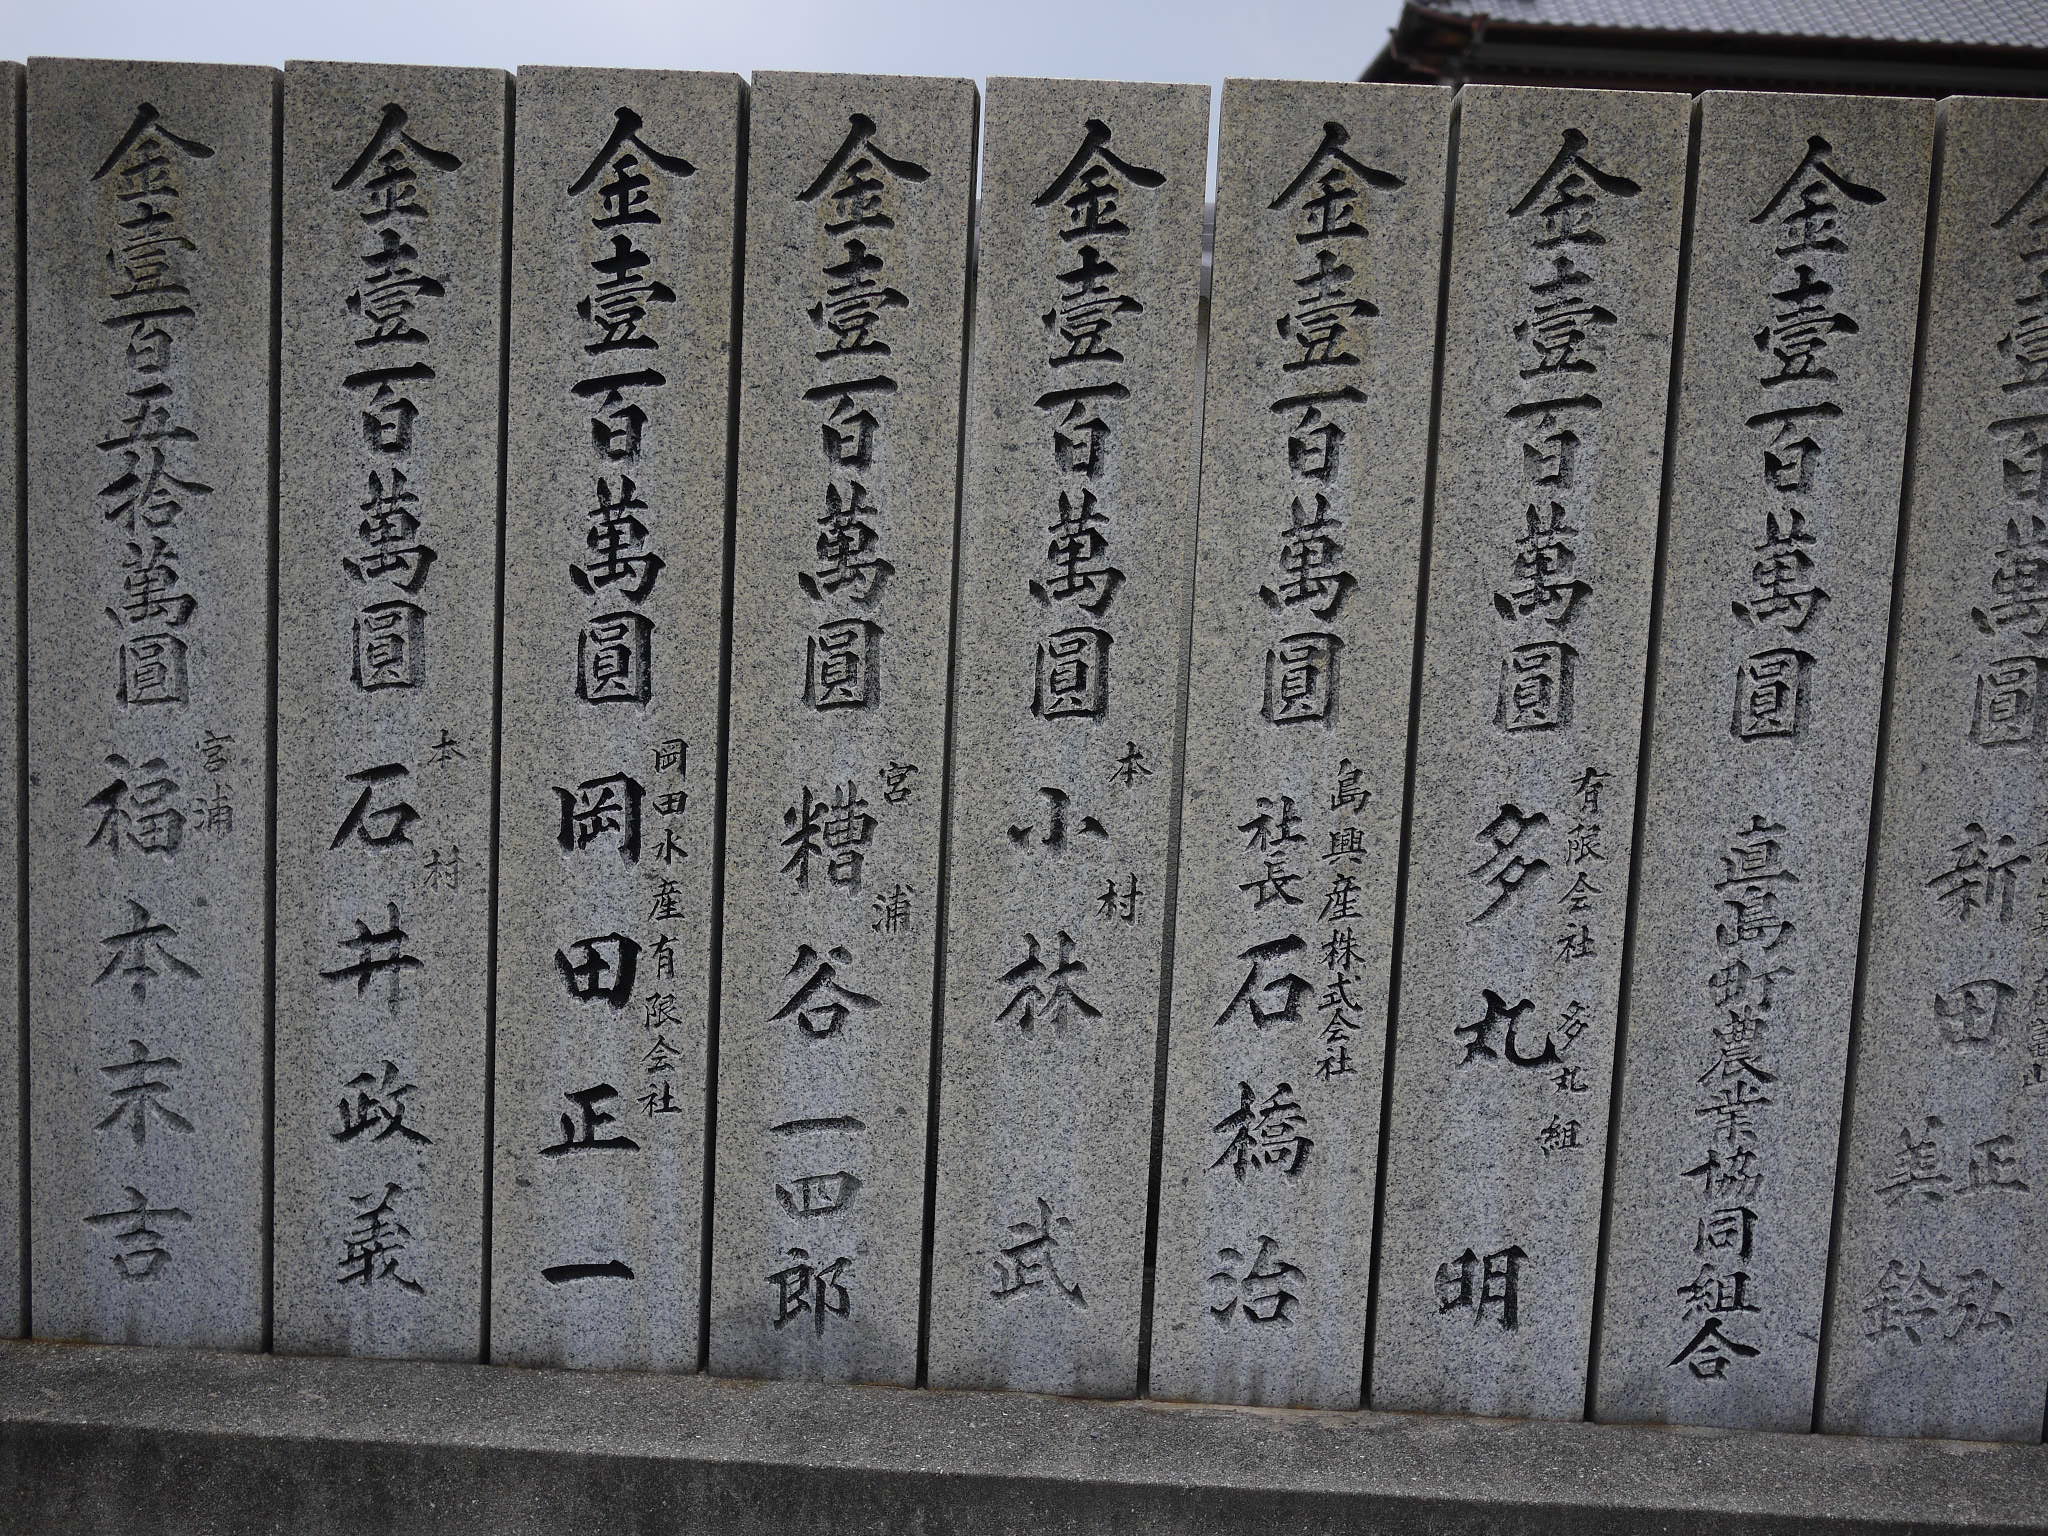 金壹百萬圓
新田
正弘
美鈴
金壹百萬圓
直島町農業協同組合
金壹百萬圓
有限会社 多丸組
多丸 明
金壹百萬圓
島興産株式会社
社長 石橋 治
金壹百萬圓
本村
小林 武
金壹百萬圓
宮浦
糟谷一四郎
金壹百萬圓
岡田水産有限会社
岡田正一
金壹百萬圓
本村
石井政義
金壹百五拾萬圓
宮浦
福本末吉